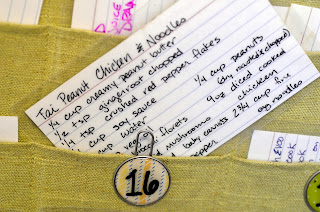 Tai Peanut Chicken & Noodles
1/4 cup creamy peanut butter
1/2 tsp gingerroot chopped
1/4 tsp crushed red pepper flakes
1/4 cup soy sauce
cup water
florets
mushrooms
baby carrots
pepper
1/4 cup peanuts
(dry roasted & chopped)
9oz diced cooked
chicken
2 3/4 cup fine
egg noodles
16
cook